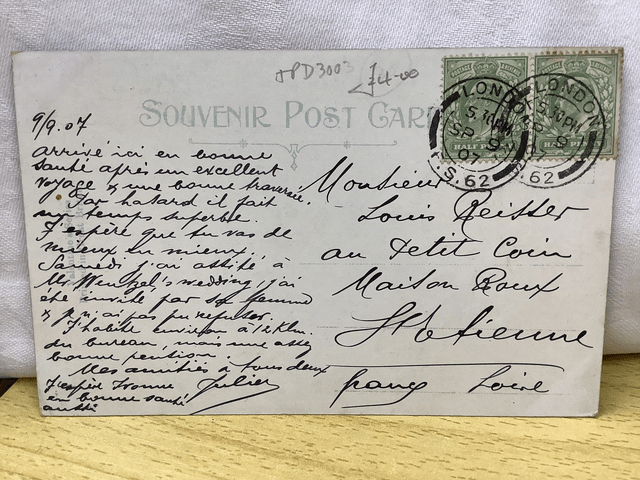 JPD3003 £4-00
SOUVENIR POST CARD
LONDON
5.10 PM
SP 9
07
F.S.62
LONDON
5.10 PM
SP 9
62
HALF PENNY
9/9.07
Arrivé ici en bonne
santé après un excellent
voyage & une bonne traversée.
Par hasard il fait
un temps superbe.
J'espère que tu vas de
mieux en mieux.
Samedi j'ai assité à
Mr Wentzel's wedding, j'ai
été invité par sa femme
& je n'ai pas pu refuser.
J'habite environ à 12 klm.
du bureau, mais une assez
bonne pension.
Mes amitiés à tous deux
Julien
J'espère Yvonne
en bonne santé
aussi
Monsieur
Louis Reisser
au Petit Coin
Maison Roux
St Etienne
Loire